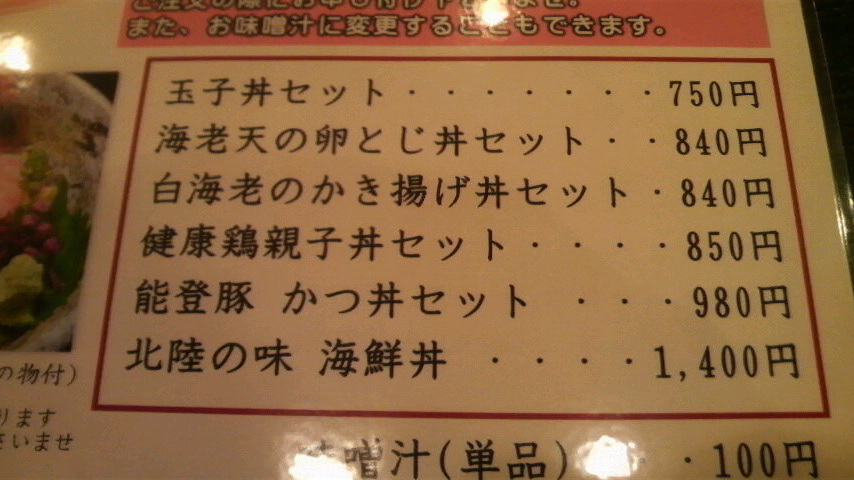 また、お味噌汁に変更することもできます。
玉子丼セット・・・・・・・750円
海老天の卵とじ丼セット・・840円
白海老のかき揚げ丼セット・840円
健康鶏親子丼セット・・・・850円
能登豚 かつ丼セット ・・・980円
北陸の味 海鮮丼 ・・・・1,400円
の物付)
ります
さいませ
味噌汁(単品) ・・100円